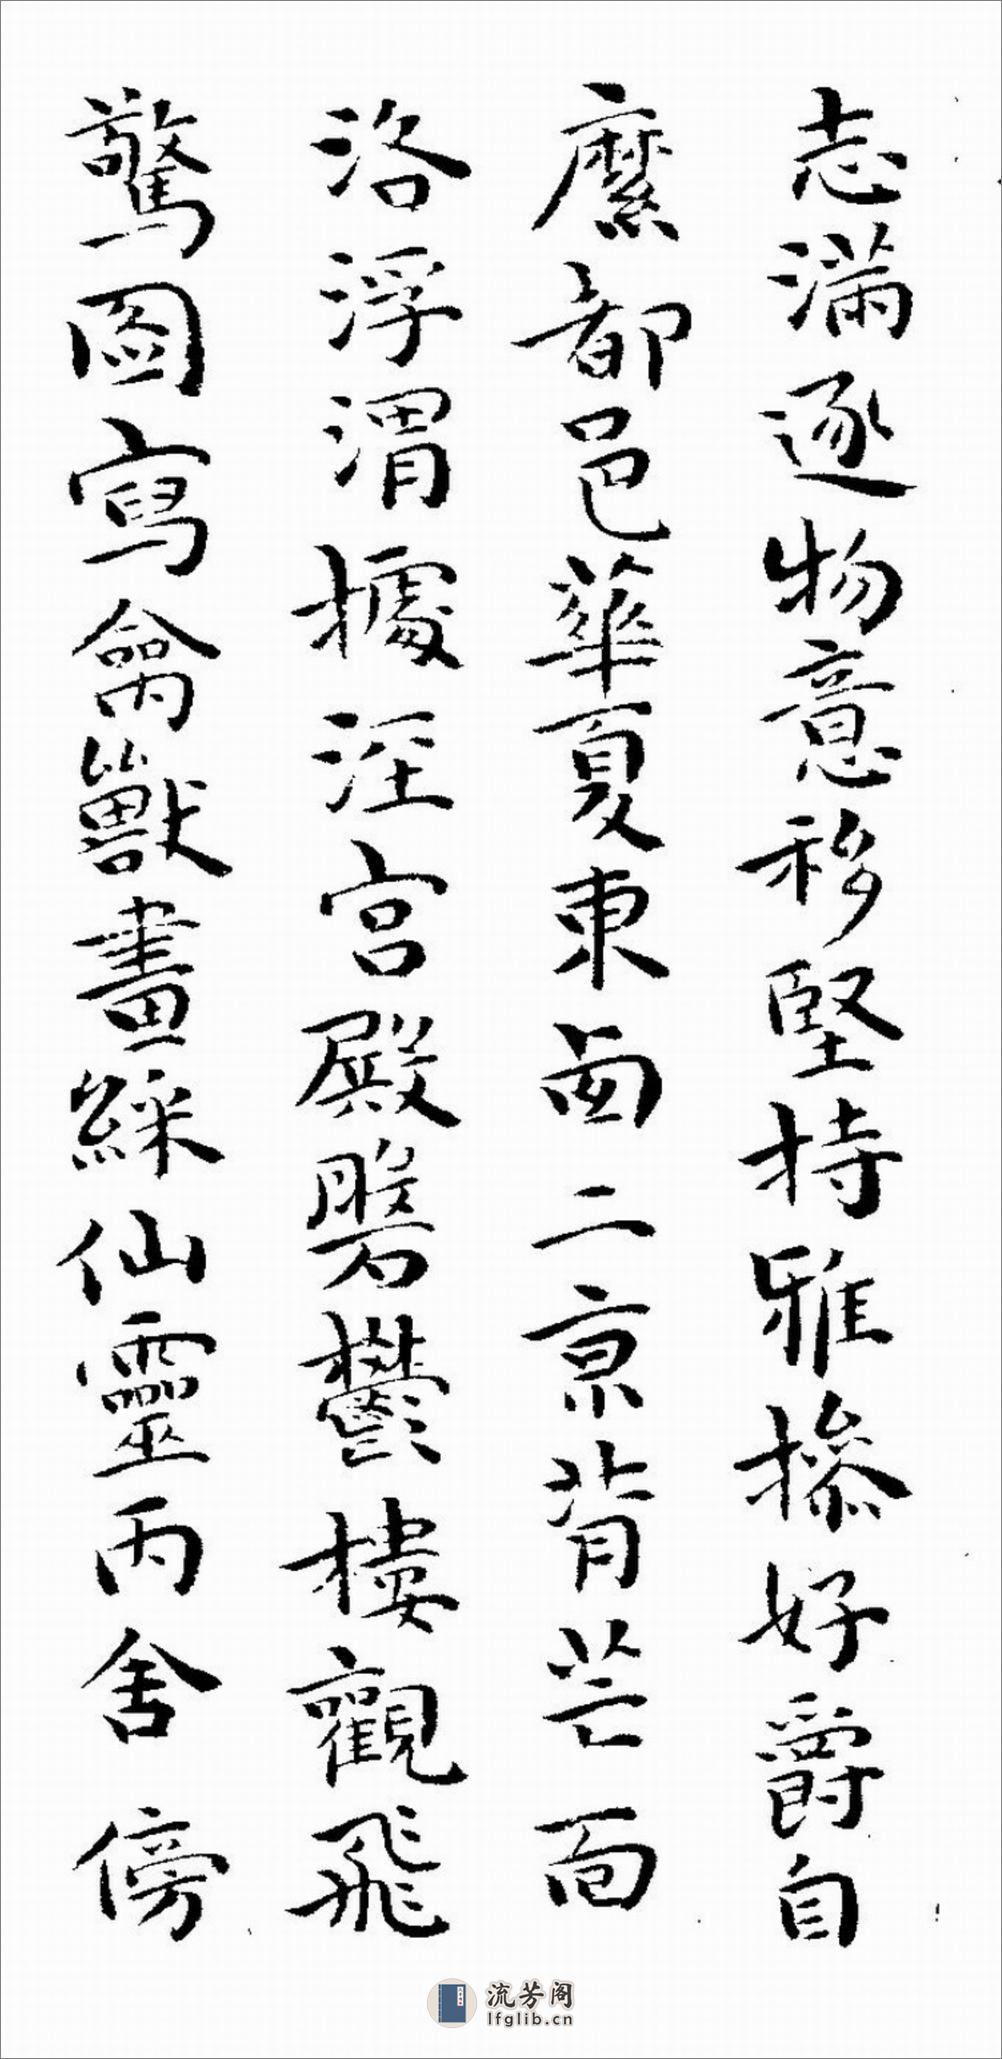 志滿逐物意移堅持雅操好爵自
縻都邑華夏東西二京背芒面
洛浮渭據涇宮殿磐鬱樓觀飛
驚圖寫禽獸畫綵仙靈丙舍傍
流芳阁
lfglib.cn